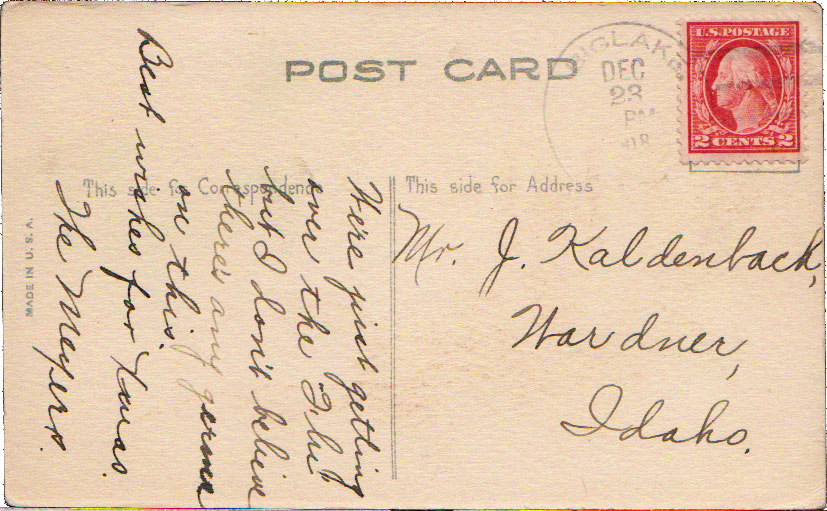 POST CARD
BIGLAKE
DEC
23
PM
U.S. POSTAGE
2 CENTS 2
This side for Correspondence
This side for Address
MADE IN U.S.A.
We're just getting
over the Flu
but I don't believe
there's any germs
on this.
Best wishes for Xmas.
The Meyers.
Mr. J. Kaldenback,
Wardner,
Idaho.